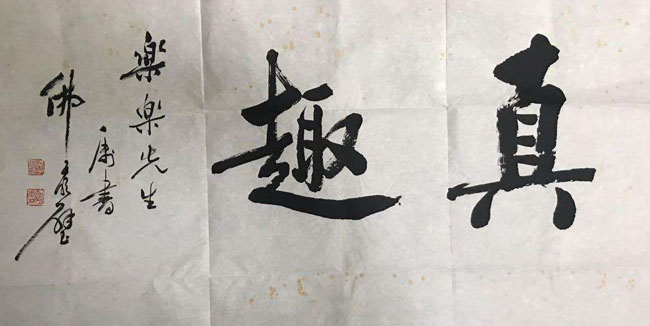 真趣
樂樂先生
属書
佛